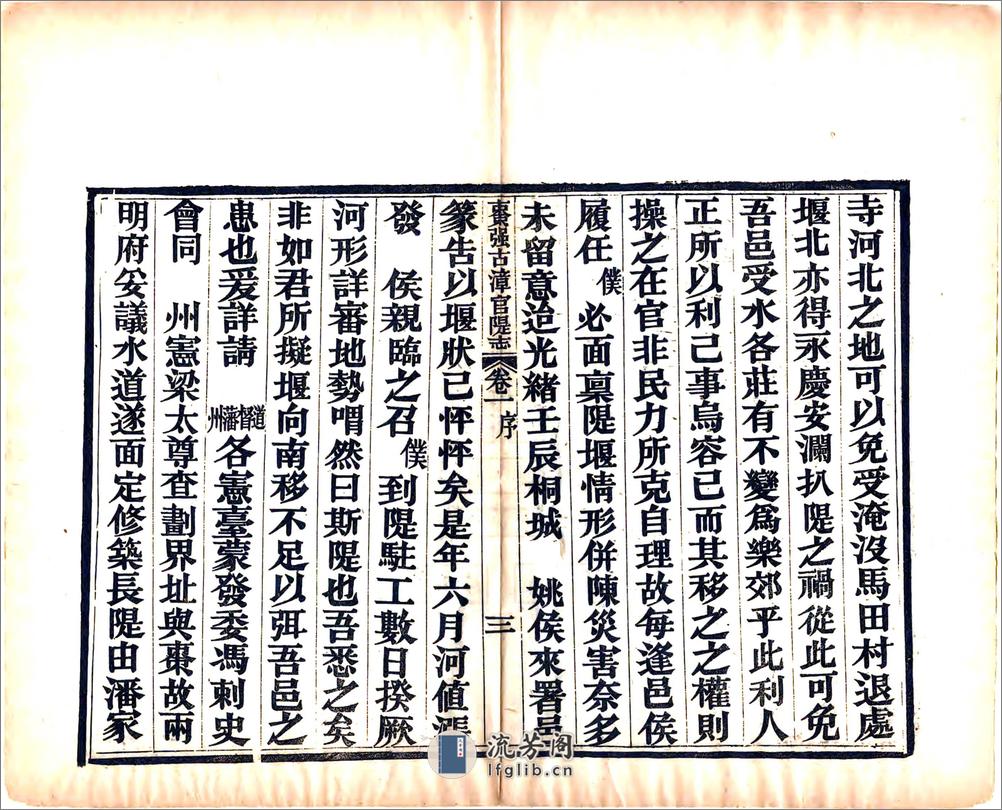 寺河北之地可以免受淹沒馬田村退處
堰北亦得永慶安瀾扒隄之禍從此可免
吾邑受水各莊有不變爲樂郊乎此利人
正所以利己事烏容已而其移之之權則
操之在官非民力所克自理故每逢邑侯
履任 僕 必面稟隄堰情形併陳災害奈多
未留意迨光緒壬辰桐城 姚侯來署邑
棗强古漳官隄志 卷一 序 三
篆吿以堰狀已怦怦矣是年六月河值漲
發 侯親臨之召 僕 到隄駐工數日揆厥
河形詳審地勢喟然曰斯隄也吾悉之矣
非如君所擬堰向南移不足以弭吾邑之
患也爰詳請 道督藩州 各憲臺蒙發委馮刺史
會同 州憲梁太尊查劃界址與棗故兩
明府妥議水道遂面定修築長隄由潘家
流芳阁
lfglib.cn